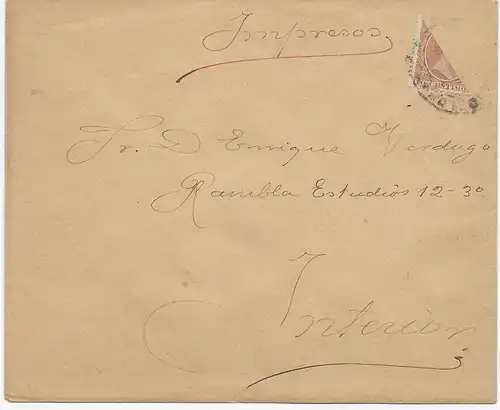 Impresos
Sr. D Enrique Verdugo
Rambla Estudios 12-3º
Interior